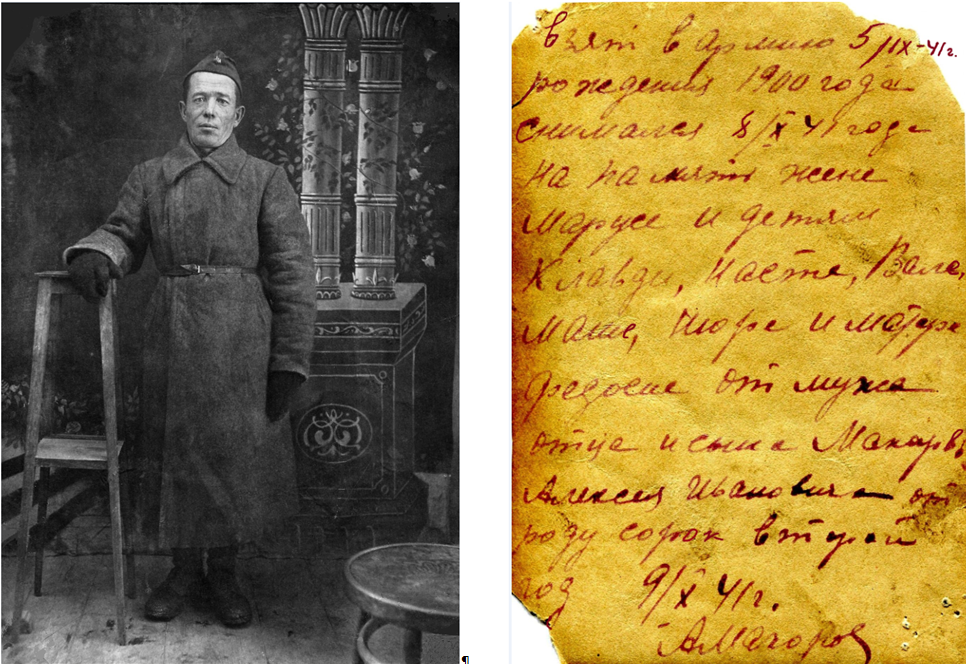 взят в армию 5/IX-41г.
рождения 1900 года
снимался 8/X 41 года
на память жене
Марусе и детям
Клавди, Насте, Вале,
Мане, Нюре и матере
Федосье от мужа
отца и сына Макарва
Алексея Ивановича от
роду сорок второй
год 9/X 41г.
АМакаров
¶